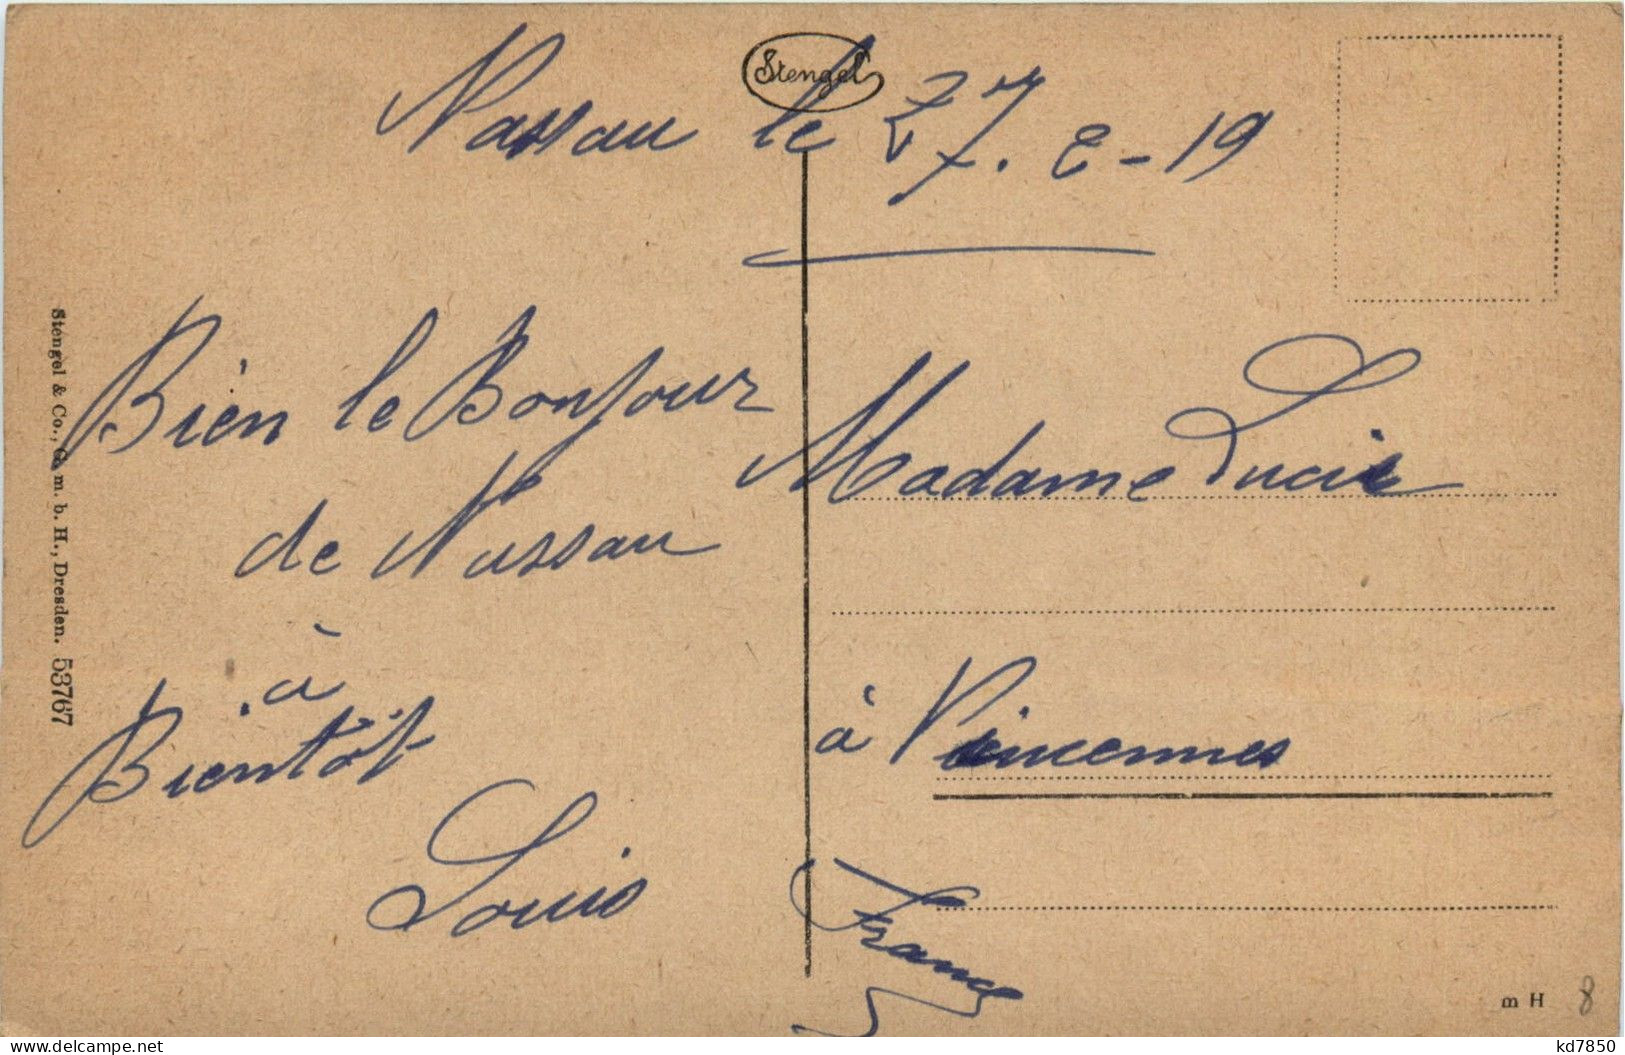 Stengel
Nassau le 27. 8-19
Bien le Bonjour
de Nassau
à
Bientôt
Louis
Madame Lucie
à Vincennes
France
Stengel & Co., G. m. b. H., Dresden. 53767
m H
8
kd7850